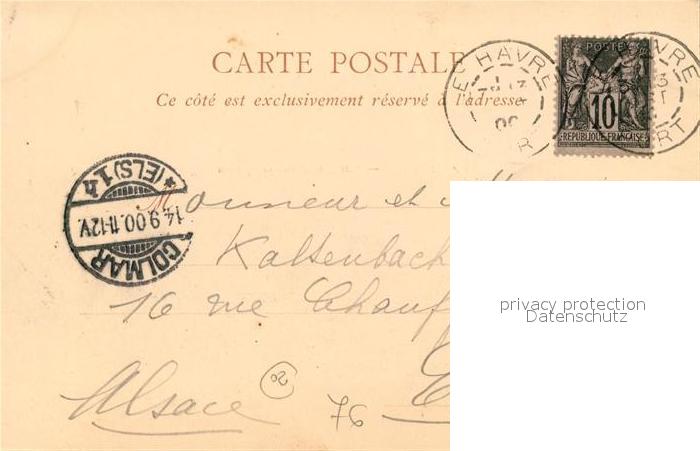 CARTE POSTALE
Ce côté est exclusivement réservé à l'adresse
LE HAVRE
POSTE
10
REPUBLIQUE FRANCAISE
COLMAR
14.9.00.11-12V.
* (ELS) 1h
Monsieur et
Kaltenbach
16 rue Chauff
Alsace
02
76
privacy protection
Datenschutz